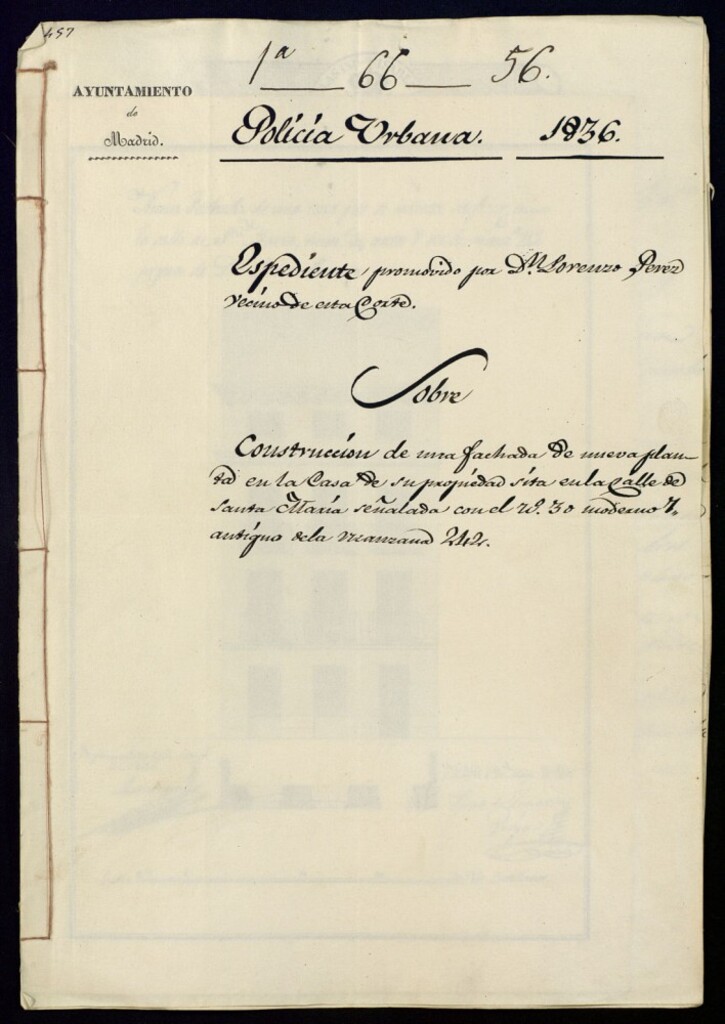 457
1ª 66 56.
AYUNTAMIENTO
de
Madrid.
Policía Urbana. 1836.
Espediente promovido por Dn. Lorenzo Perez
vecino de esta Corte.
Sobre
Construccion de una fachada de nueva plan-
ta en la Casa de su propiedad sita en la Calle de
Santa María señalada con el nº. 30 moderno 7,
antiguo de la manzana 242.